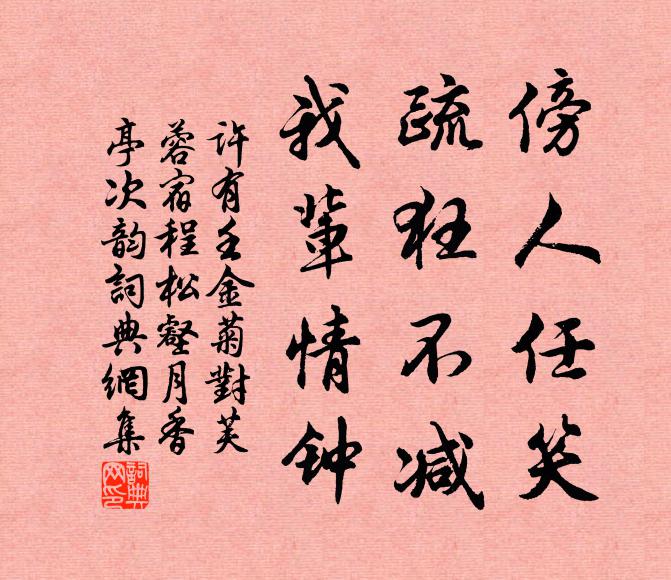 傍人任笑
疏狂不减
我辈情钟
许有壬金菊對芙
蓉宿程松壑月香
亭次韵詞典網集
詞典网印